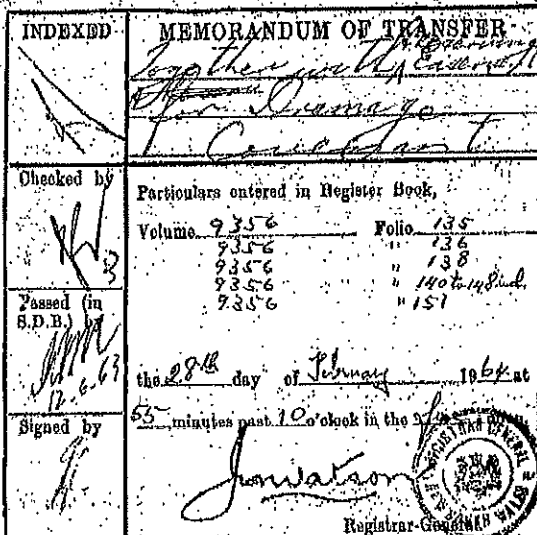 INDEXED
MEMORANDUM OF TRANSFER
Together with
Reserving Easement
for Drainage
Covenant
Checked by
Particulars entered in Register Book,
Volume 9356 Folio 135
9356 " 136
9356 " 138
9356 " 140 to 148 incl.
9356 " 151
Passed (in
S.D.B.) by
12.6.63
the 28th day of February 1964 at
55 minutes past 10 o'clock in the
Signed by
Jas Watson
Registrar-General
REGISTRAR GENERAL